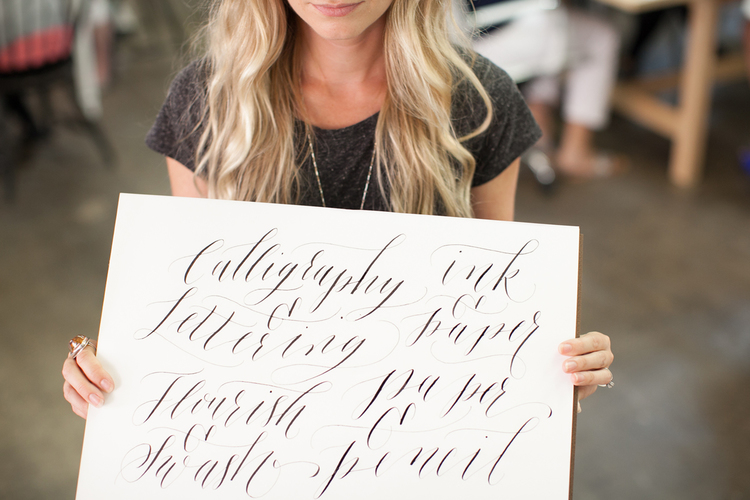 Calligraphy
&
lettering
ink
&
paper
flourish
&
swash
paper
&
pencil